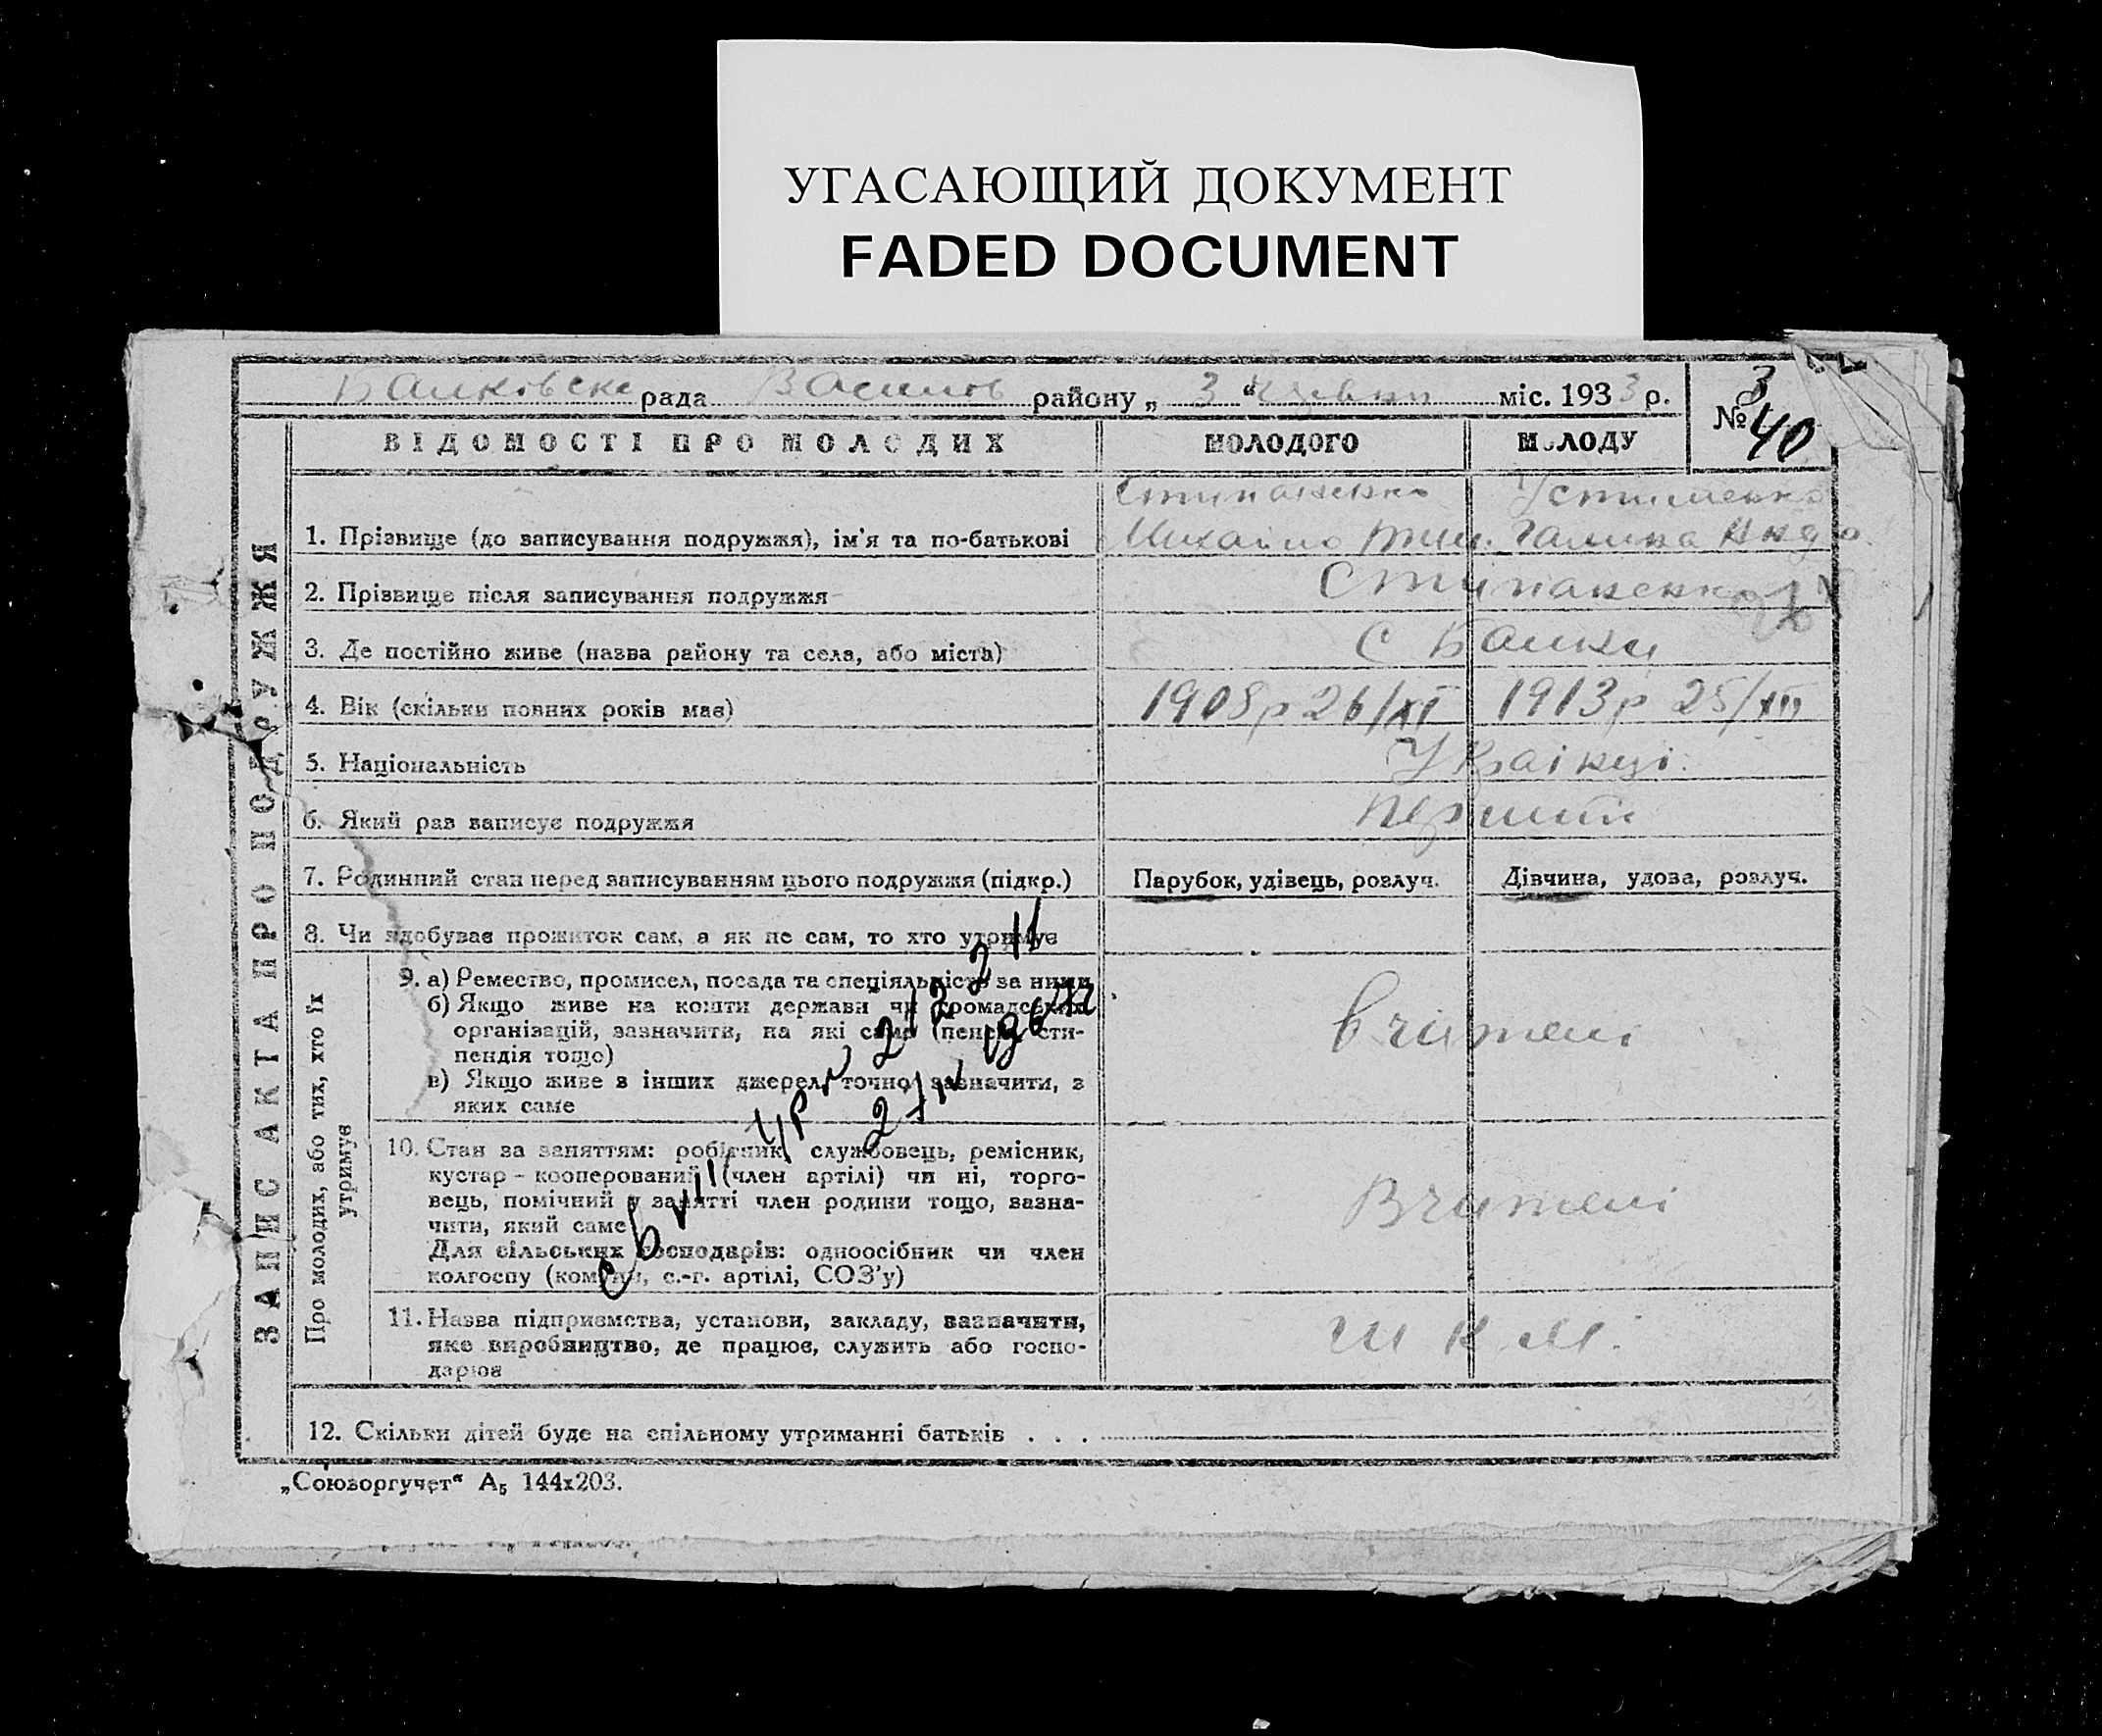 УГАСАЮЩИЙ ДОКУМЕНТ
FADED DOCUMENT
Балковска рада Василів району „ 3 “ червня міс. 1933 р.
3
№ 40
ЗАПИС АКТА ПРО ПОДРУЖЖЯ
ВІДОМОСТІ ПРО МОЛОДИХ МОЛОДОГО МОЛОДУ
Стипаненко Устименко
1. Прізвище (до записування подружжя), ім'я та по-батькові Михайло Тим. Галина
2. Прізвище після записування подружжя Стипаненко
3. Де постійно живе (назва району та села, або міста) С Балки
4. Вік (скільки повних років має) 1908р 26/XI 1913р 25/XII
5. Національність Українці.
6. Який раз записує подружжя перший
7. Родинний стан перед записуванням цього подружжя (підкр.) Парубок, удівець, розлуч. Дівчина, удова, розлуч.
8. Чи здобуває прожиток сам, а як не сам, то хто утримує
Про молодих, або тих, хто їх
утримує
9. а) Ремество, промисел, посада та спеціяльність за ними
б) Якщо живе на кошти держави чи громадських
організацій, зазначити, на які саме (пенсія, сти-
пендія тощо)
в) Якщо живе з інших джерел, точно зазначити, з
яких саме
вчителі
10. Стан за заняттям: робітник, службовець, ремісник,
кустар - кооперований (член артілі) чи ні, торго-
вець, помічний у занятті член родини тощо, зазна-
чити, який саме
Для сільських господарів: одноосібник чи член
колгоспу (комуни, с.-г. артілі, СОЗ'у)
Вчителі
11. Назва підприємства, установи, закладу, зазначити,
яке виробництво, де працює, служить або госпо-
дарює
Ш К М.
12. Скільки дітей буде на спільному утриманні батьків . . .
„Союзоргучет“ А₅ 144х203.